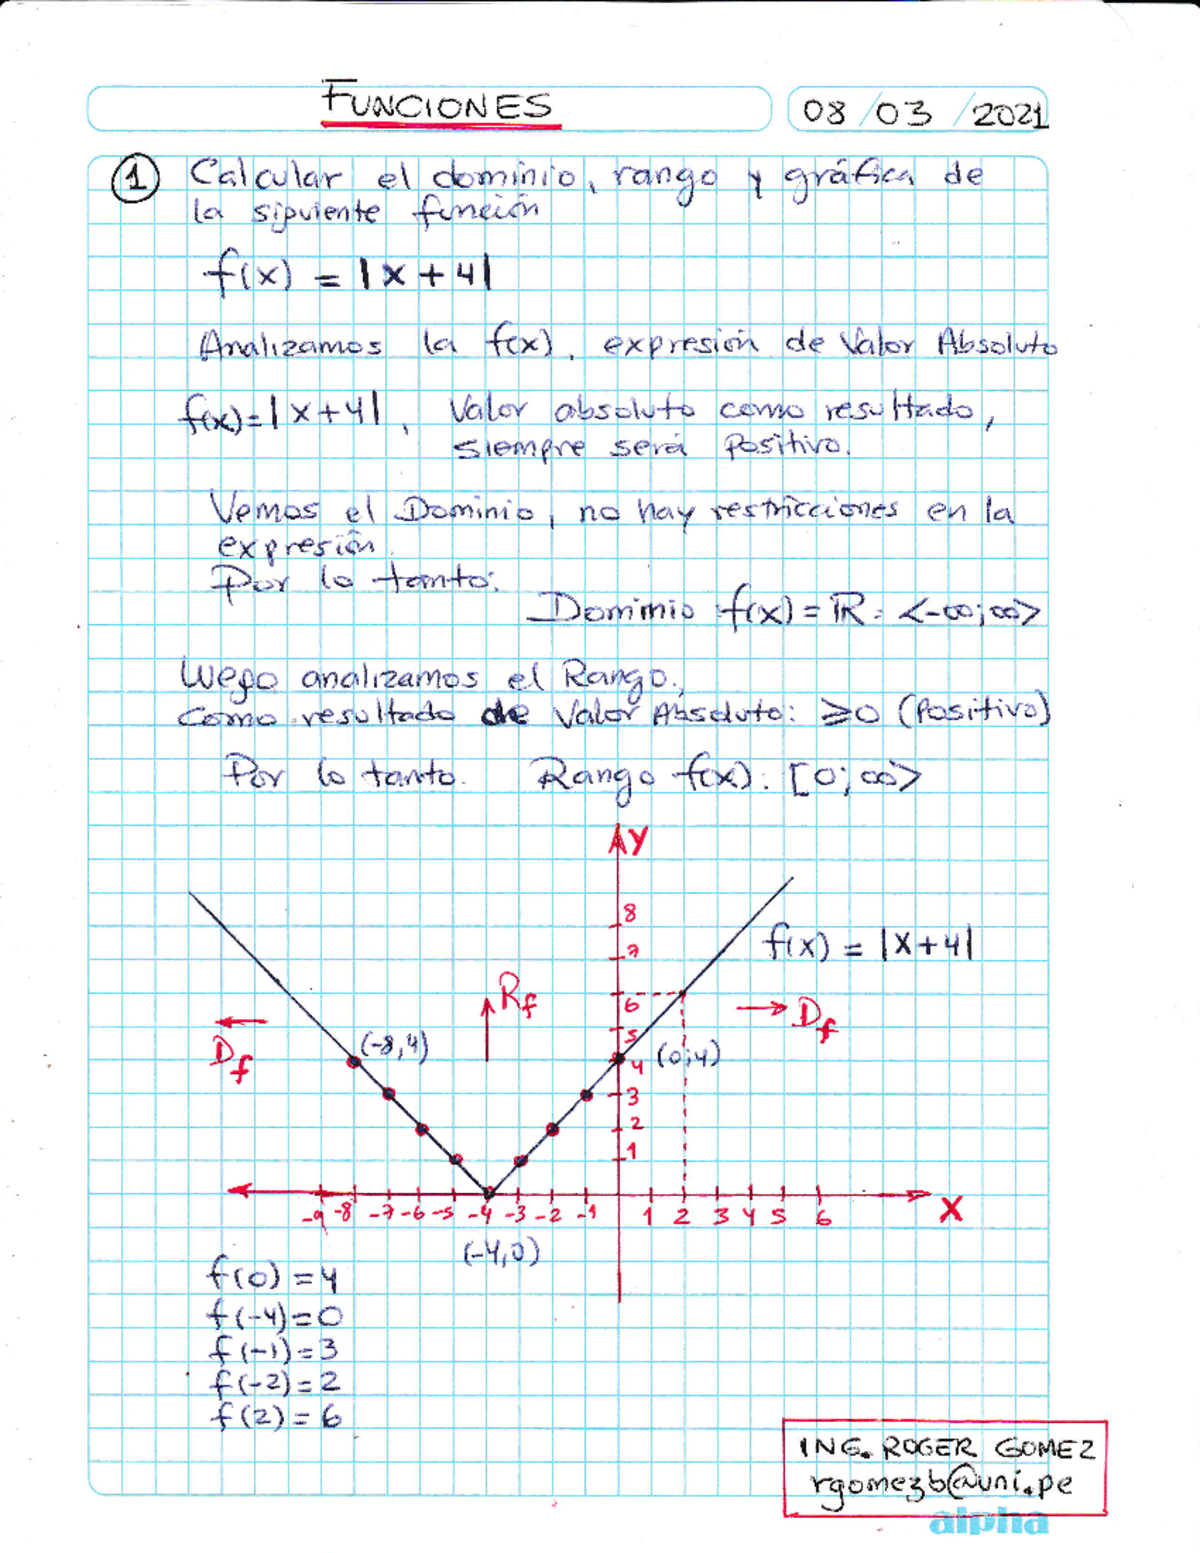 FUNCIONES
08/03/2021
1 Calcular el dominio, rango y gráfica de
la siguiente función
f(x) = |x+4|
Analizamos la f(x), expresión de Valor Absoluto
f(x)=|x+4|, Valor absoluto como resultado,
siempre será Positivo.
Vemos el Dominio, no hay restricciones en la
expresión.
Por lo tanto:
Dominio f(x) = ℝ = <-∞;∞>
Luego analizamos el Rango.,
Como resultado de Valor Absoluto: ≥0 (Positivo)
Por lo tanto. Rango f(x): [0;∞>
Y
8
7
f(x) = |x+4|
6
Rf
Df
5
(-8,4)
(0;4)
4
Df
3
2
1
-9 -8 -7 -6 -5 -4 -3 -2 -1 1 2 3 4 5 6
X
(-4,0)
f(0) = 4
f(-4)=0
f(-1)=3
f(-2)=2
f(2) = 6
ING. ROGER GOMEZ
rgomezb@uni.pe
alpha